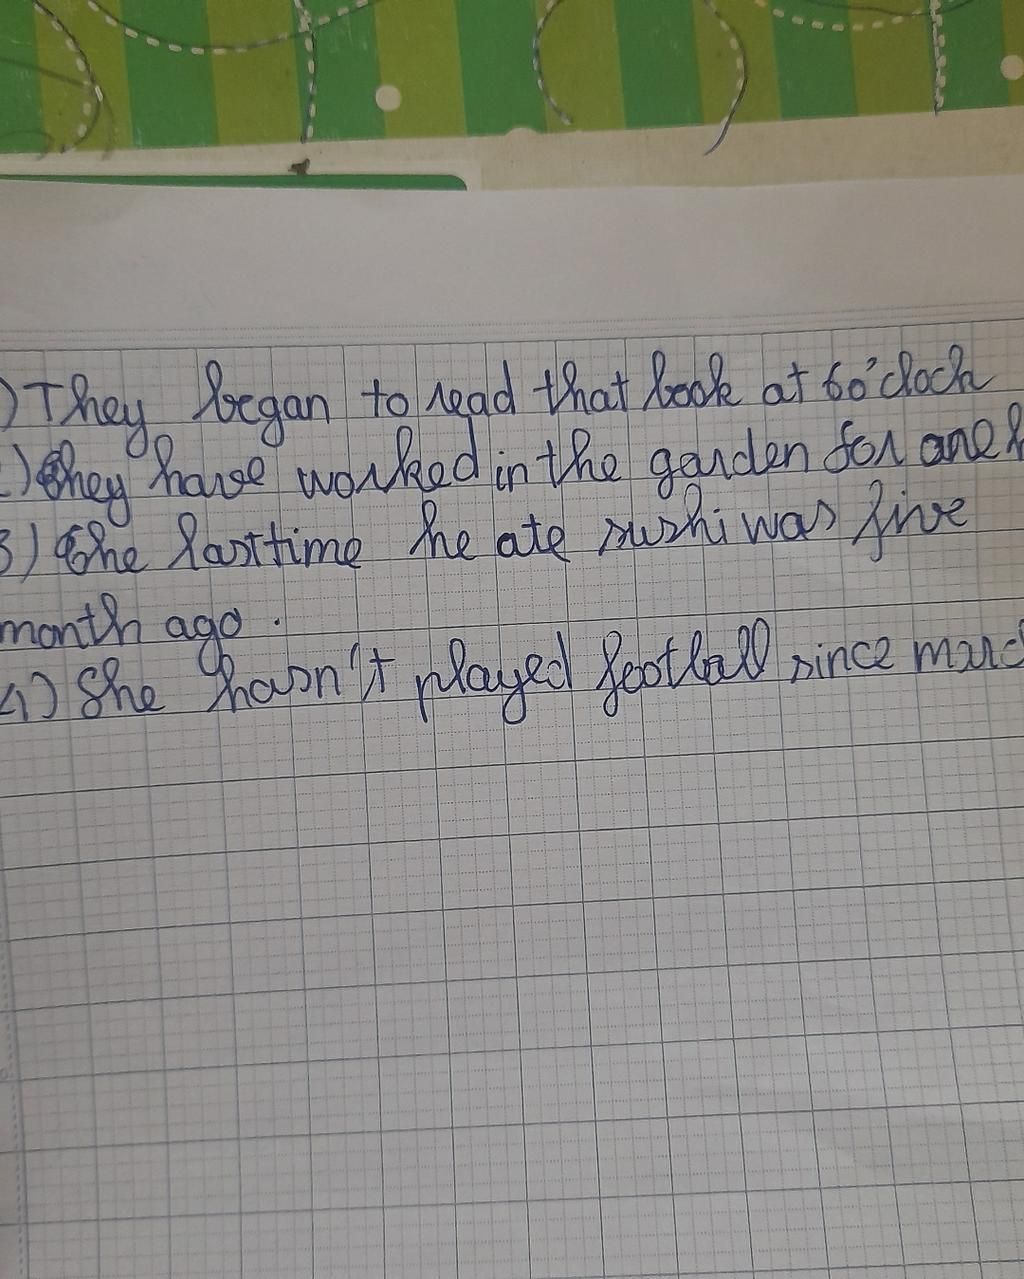 ) They began to read that book at 6 o'clock
) They have worked in the garden for one
3) The last time he ate sushi was five
month ago.
4) She hasn't played football since